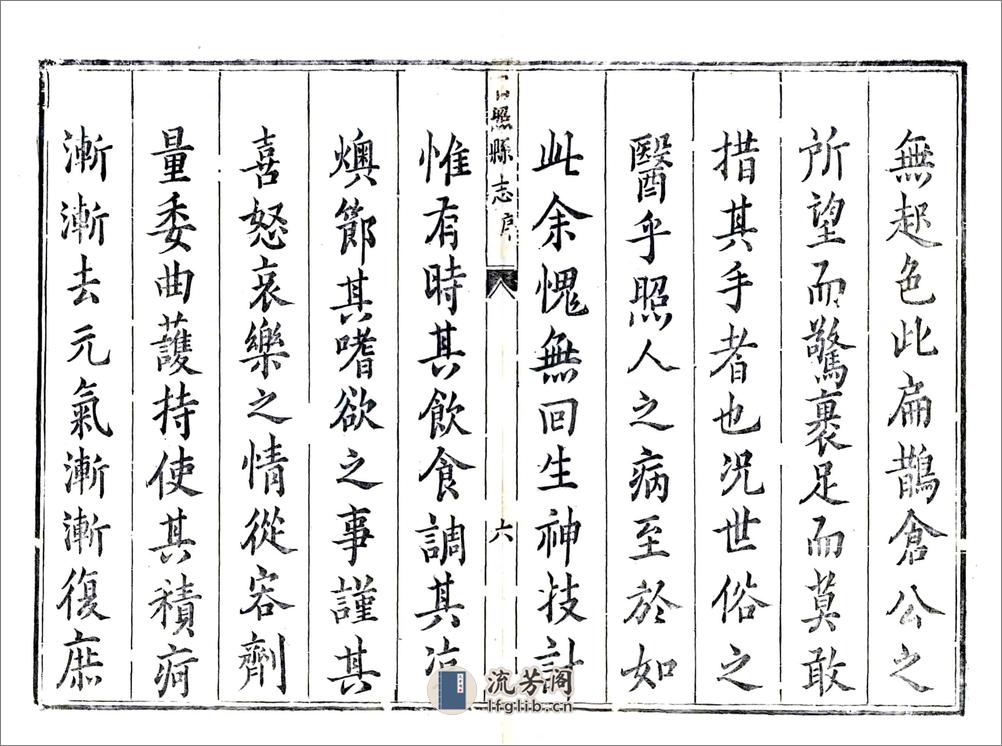 無起色此扁鵲倉公之
所望而驚裹足而莫敢
措其手者也况世俗之
醫乎照人之病至於如
此余愧無回生神技計
日照縣志序
六
惟有時其飲食調其涼
燠節其嗜欲之事謹其
喜怒哀樂之情從容劑
量委曲護持使其積疴
漸漸去元氣漸漸復庶
流芳阁
lfglib.cn